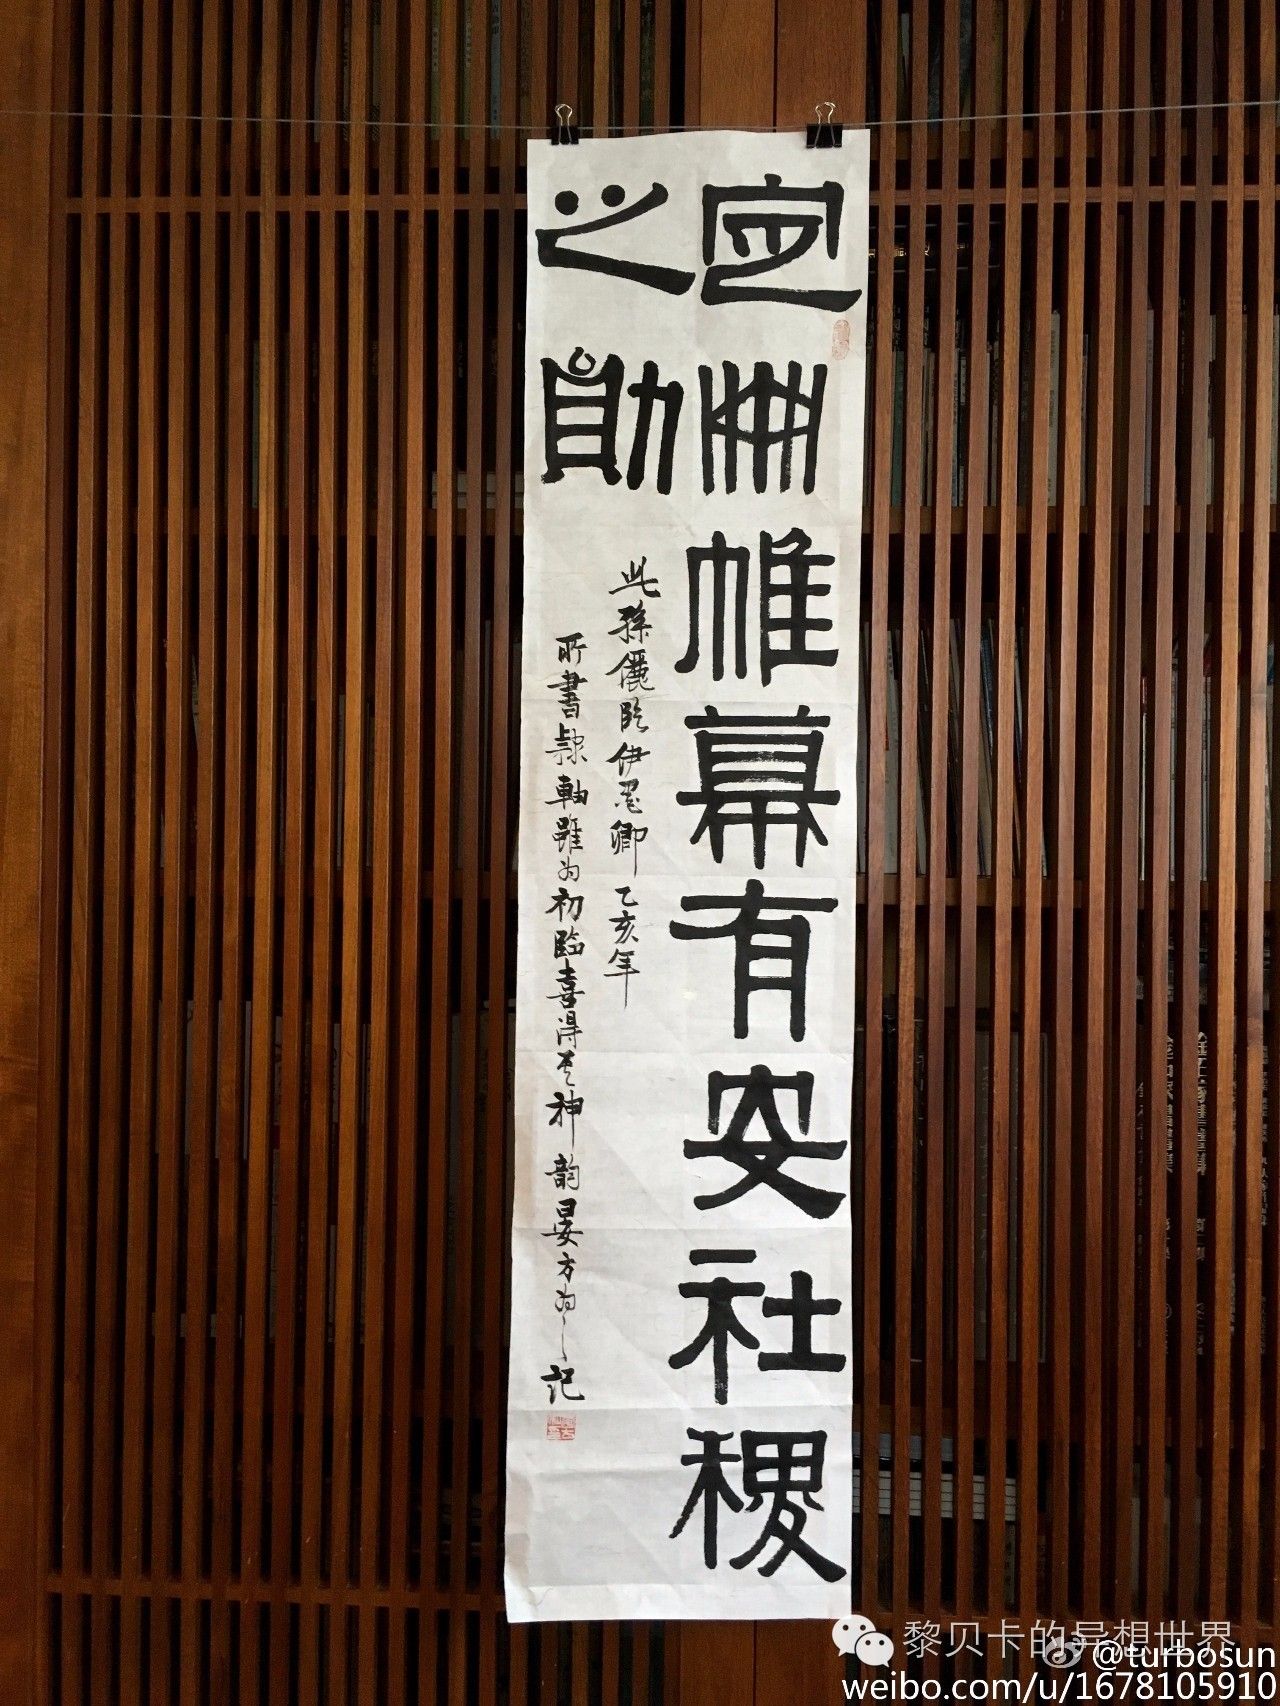 定冊帷幕有安社稷
之勛
此孫儷臨伊墨卿乙亥年
所書隸軸雖為初臨喜得其神韵晏方為之記
黎贝卡的异想世界
@turbosun
weibo.com/u/1678105910